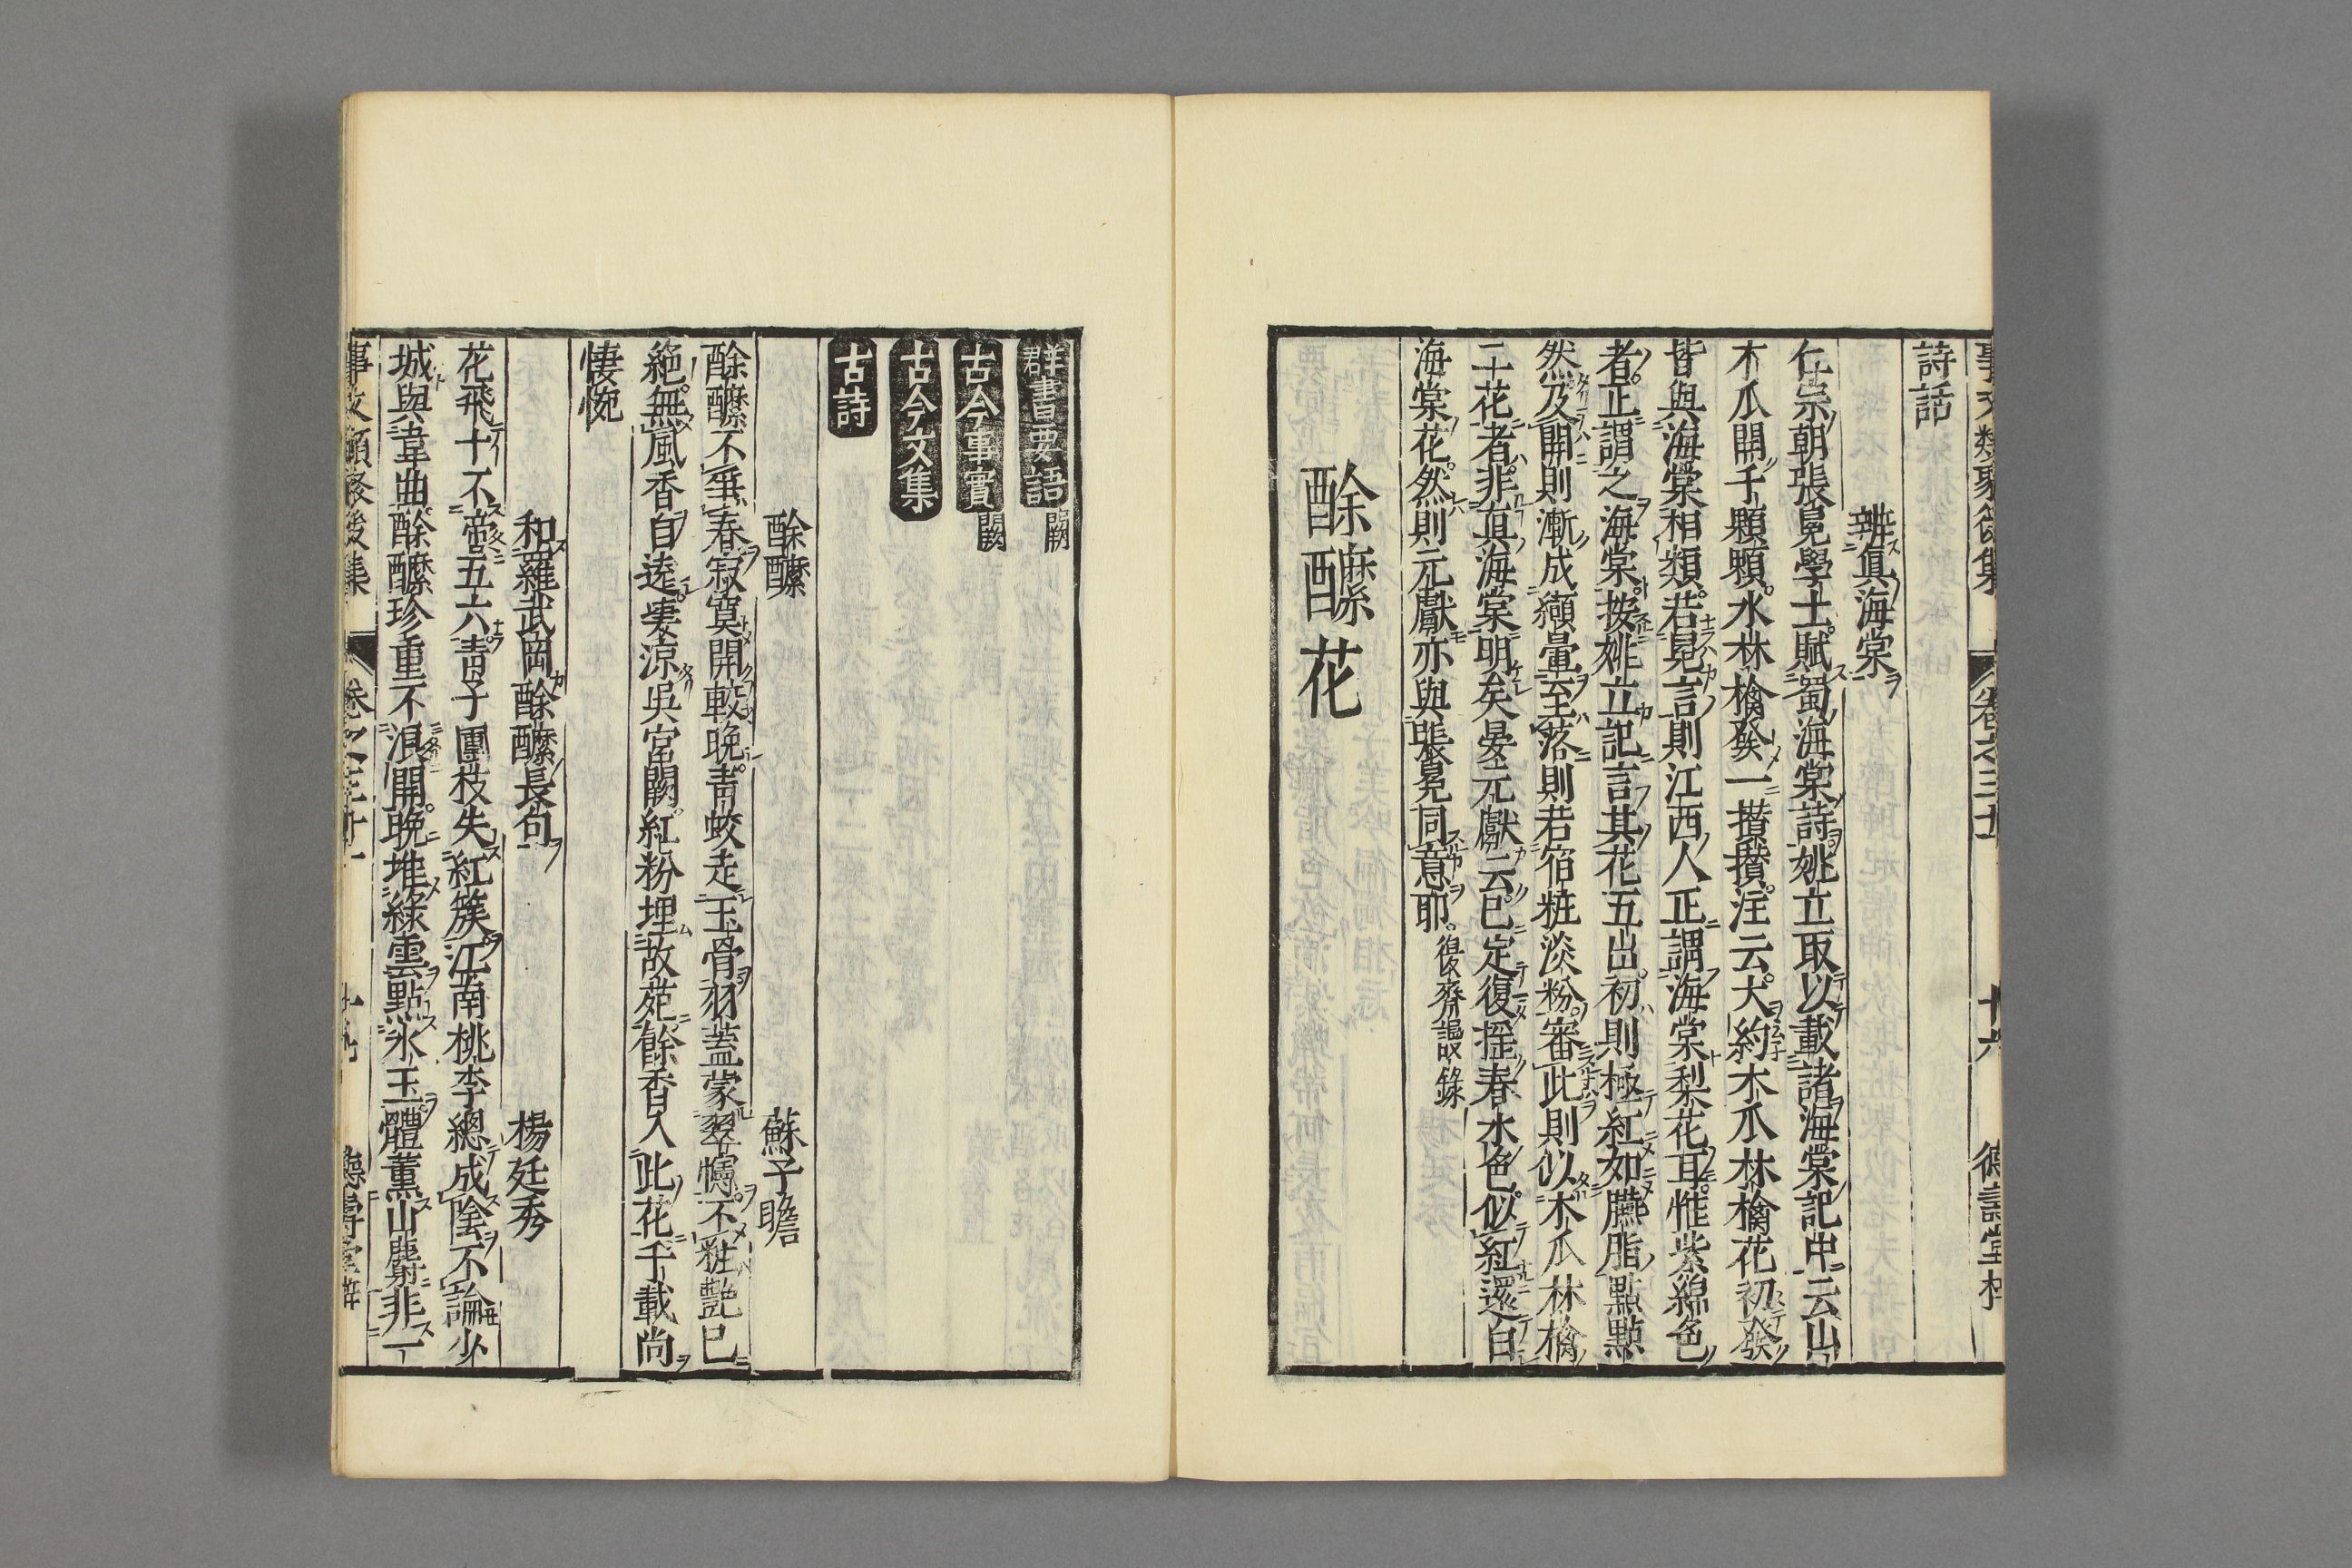 詩話
辨眞海棠
仁宗朝張冕學士賦蜀海棠詩姚立取以載諸海棠記中云山
木瓜開千顆顆水林檎發一攅攅注云大約木瓜林檎花初發
皆與海棠相類若冕言則江西人正謂海棠梨花耳惟紫綿色
者正謂之海棠按姚立記言其花五出初則極紅如臙脂點點
然及開則漸成纈暈至落則若宿粧淡粉審此則似木瓜林檎
二花者非眞海棠明矣晏元獻云已定復揺春水色似紅還白
海棠花然則元獻亦與張冕同意耶復齋謾錄
酴醾花
群書要語闕
古今事實闕
古今文集
古詩
酴醾 蘇子瞻
酴醾不爭春寂寞開較晩青蛟走玉骨羽蓋蒙翠幬不粧艷已
絕無風香自遠凄涼吳宮闕紅粉埋故苑餘香入此花千載尚
悽惋
和羅武岡酴醾長句 楊廷秀
花飛十不帝五六青子團枝失紅簇江南桃李總成陰不論少
城與韋曲酴醾珍重不浪開晩堆綠雲點氷玉體薰山麝非一